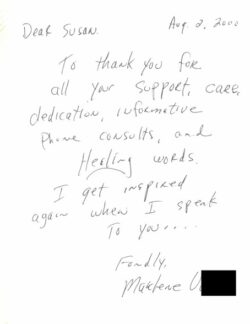 Aug 2, 2000
Dear Susan.
To thank you for
all your support, care,
dedication, informative
phone consults, and
Healing words.
I get inspired
again when I speak
To you....
Fondly,
Marlene